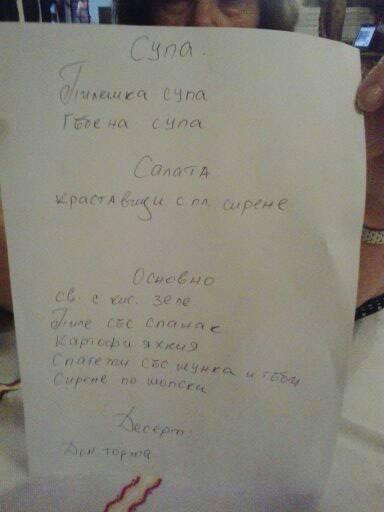 Супа.
Пилешка супа
Гъбена супа
Салата
краставици с пл. сирене
Основно
св. с кис. зеле
Пиле със спанак
Картофи яхния
Спагети със шунка и гъби
Сирене по шопски
Десерт.
Дом. торта